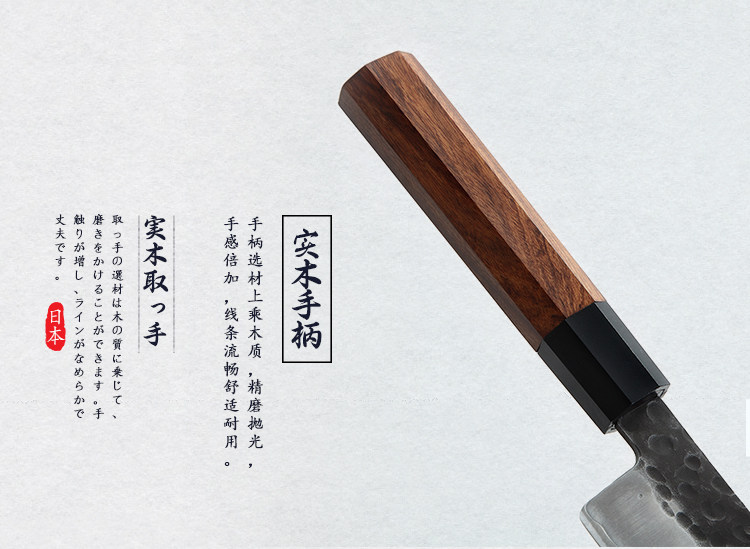 实木手柄
手柄选材上乘木质，精磨抛光，
手感倍加，线条流畅舒适耐用。
実木取っ手
取っ手の選材は木の質に乗じて、
磨きをかけることができます。手
触りが増し、ラインがなめらかで
丈夫です。
日本